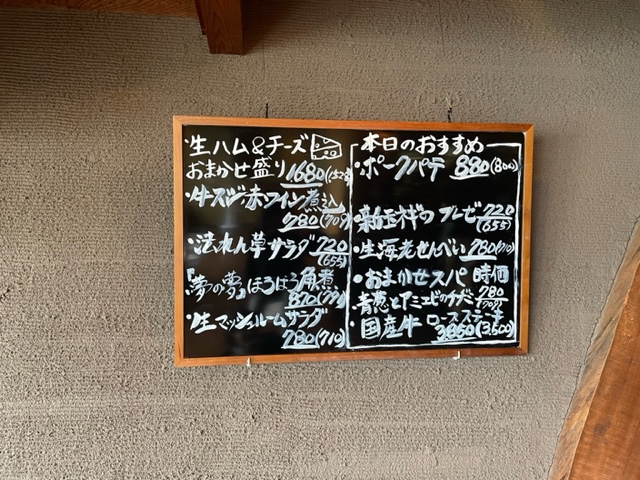 ・生ハム&チーズ
おまかせ盛り 1,680(1528)
・牛スジ赤ワイン煮込
780(709)
・法れん草サラダ 720
(655)
『夢の夢』ほろほろ角煮
870(791)
・生マッシュルームサラダ
780(710)
本日のおすすめ
・ポークパテ 880(800)
・新玉ネギの ブレゼ 720
(655)
・生海老せんべい 780(710)
・おまかせスパ 時価
・青葱とアミエビのチヂミ 780
(709)
・国産牛 ロースステーキ
3850(3,500)